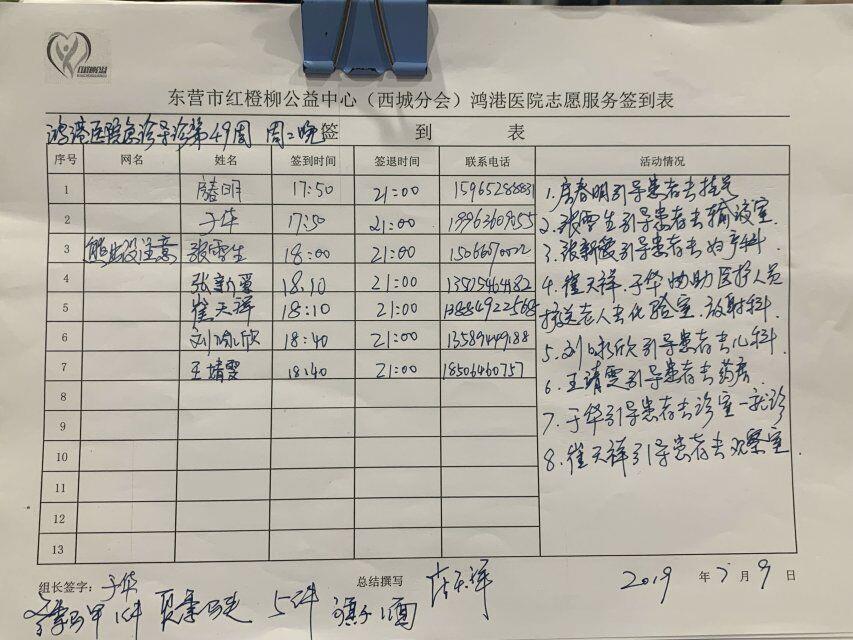 东营市红橙柳公益中心（西城分会）鸿港医院志愿服务签到表
鸿港医院急诊导诊第49周 周二晚 签 到 表
序号 网名 姓名 签到时间 签退时间 联系电话 活动情况
1 17:50 21:00 15965288831
2 于华 17:50 21:00
3 熊出没注意 张雪生 18:00 21:00
4 张新爱 18:10 21:00
5 崔天祥 18:10 21:00 13854922568
6 刘咏欣 18:40 21:00 13589449188
7 王靖雯 18:40 21:00 18506460757
8
9
10
11
12
13
1. 引导患者去
2. 张雪生引导患者去输液室.
3. 张新爱引导患者去妇产科.
4. 崔天祥.于华协助医护人员
接送老人去化验室.放射科.
5. 刘咏欣引导患者去儿科.
6. 王靖雯引导患者去药房
7. 于华引导患者去诊室一就诊
8. 崔天祥引导患者去观察室
组长签字： 于华 总结撰写 崔天祥 2019 年 7 月 9 日
5件 旗子1面